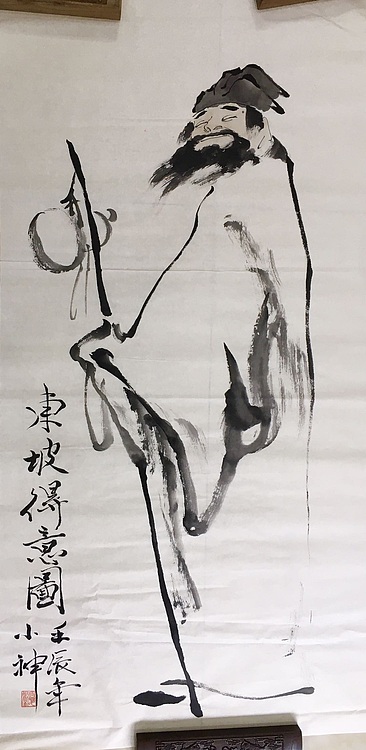 東坡得意圖
壬辰年
小神